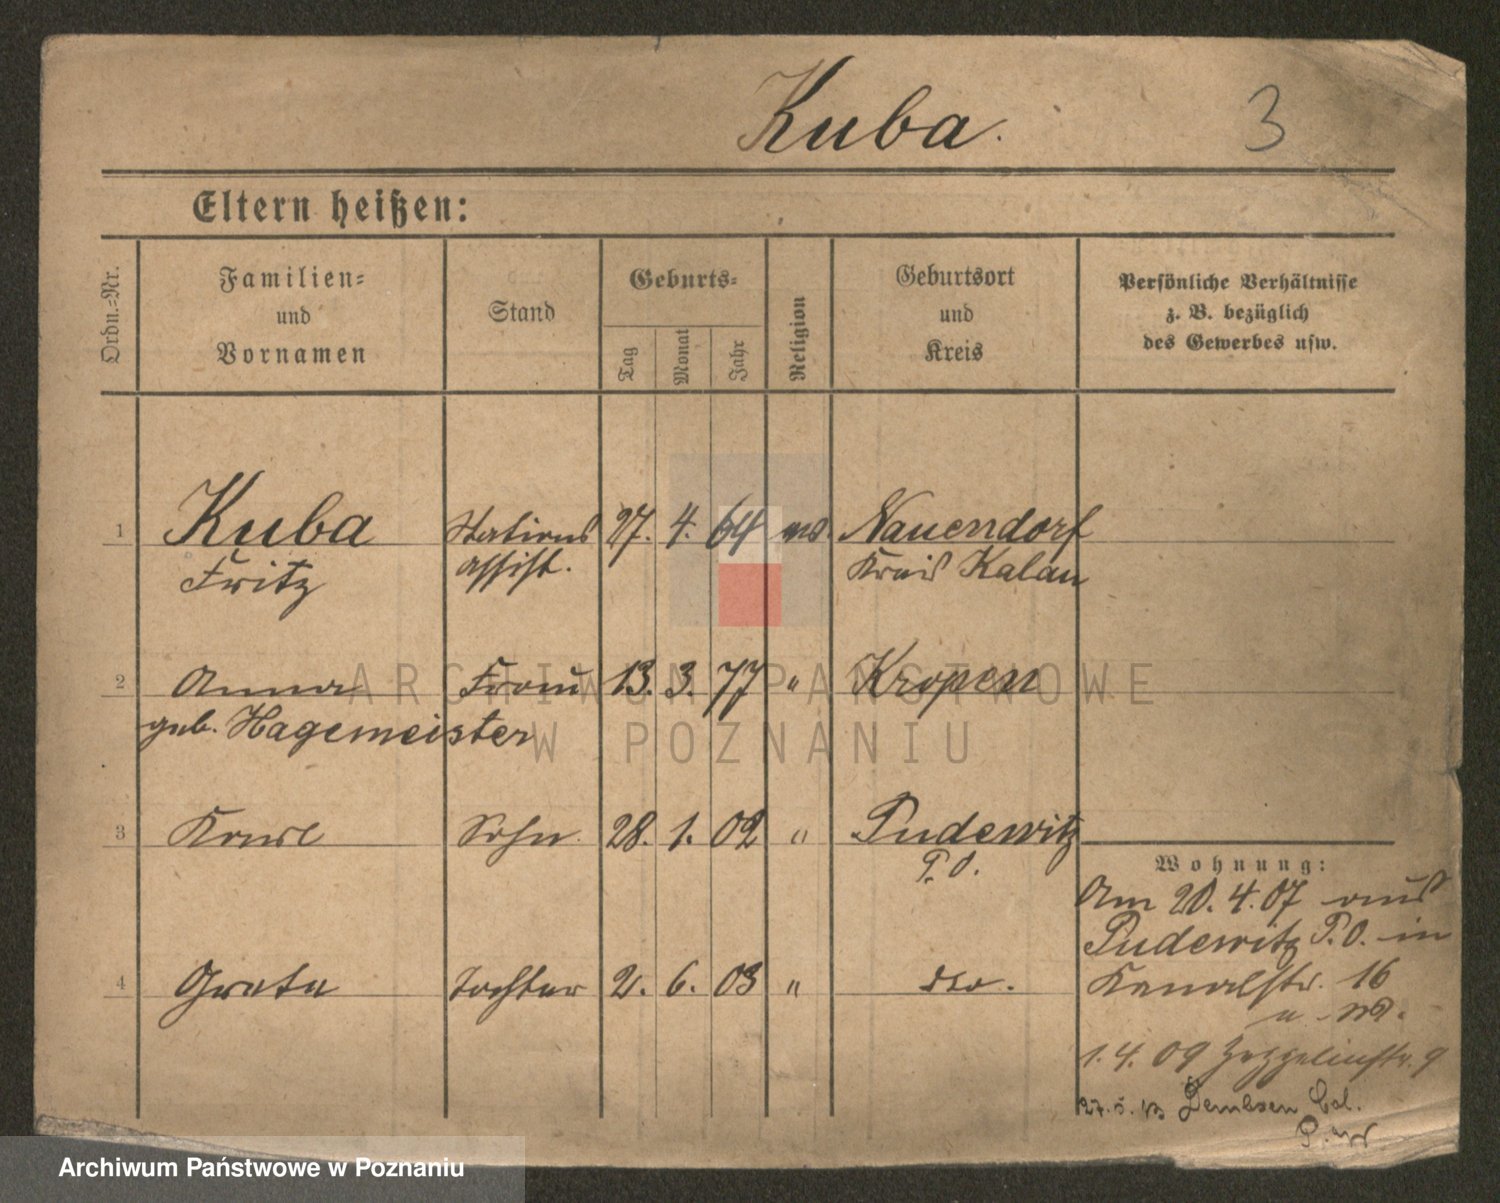 Kuba. 3
Eltern heißen:
Ordn.=Nr.
Familien=
und
Vornamen
Stand
Geburts=
Tag
Monat
Jahr
Religion
Geburtsort
und
Kreis
Persönliche Verhältnisse
z. B. bezüglich
des Gewerbes usw.
1 Kuba Stations 27. 4. 64 Nauendorf
Fritz assist. Kreis Kalau
2 Anna Frau 13. 3. 77 " Kropen
geb. Hagemeister
3 Karl Sohn. 28. 1. 02 " Pudewitz
P. O.
4 Grete Tochter 2. 6. 03 " dto.
Wohnung:
Am 20. 4. 07 aus
Pudewitz P. O. in
Kanalstr. 16
1. 4. 09 Zeppelinstr. 9
27. 5. 13 Dembsen
ARCHIWUM PAŃSTWOWE
W POZNANIU
Archiwum Państwowe w Poznaniu